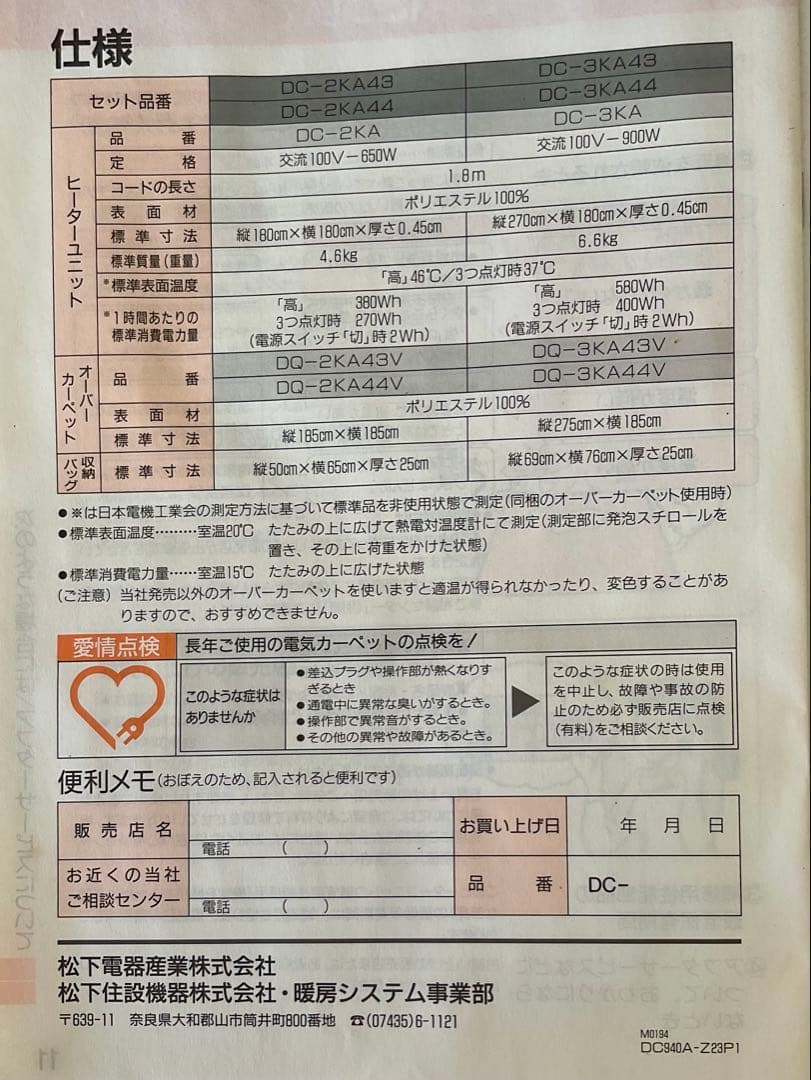 仕様
セット品番 DC-2KA43 DC-3KA43
DC-2KA44 DC-3KA44
ヒーターユニット
品番 DC-2KA DC-3KA
定格 交流100V-650W 交流100V-900W
コードの長さ 1.8m
表面材 ポリエステル100%
標準寸法 縦180cm×横180cm×厚さ0.45cm 縦270cm×横180cm×厚さ0.45cm
標準質量(重量) 4.6kg 6.6kg
*標準表面温度 「高」46℃/3つ点灯時37℃
*1時間あたりの標準消費電力量
「高」 380Wh 「高」 580Wh
3つ点灯時 270Wh 3つ点灯時 400Wh
(電源スイッチ「切」時2Wh) (電源スイッチ「切」時2Wh)
オーバーカーペット
品番 DQ-2KA43V DQ-3KA43V
DQ-2KA44V DQ-3KA44V
表面材 ポリエステル100%
標準寸法 縦185cm×横185cm 縦275cm×横185cm
収納バッグ 標準寸法 縦50cm×横65cm×厚さ25cm 縦69cm×横76cm×厚さ25cm
●※は日本電機工業会の測定方法に基づいて標準品を非使用状態で測定(同梱のオーバーカーペット使用時)
●標準表面温度………室温20℃ たたみの上に広げて熱電対温度計にて測定(測定部に発泡スチロールを
置き、その上に荷重をかけた状態)
●標準消費電力量……室温15℃ たたみの上に広げた状態
(ご注意) 当社発売以外のオーバーカーペットを使いますと適温が得られなかったり、変色することがあ
りますので、おすすめできません。
愛情点検 長年ご使用の電気カーペットの点検を!
このような症状は
ありませんか
●差込プラグや操作部が熱くなりす
ぎるとき
●通電中に異常な臭いがするとき。
●操作部で異常音がするとき。
●その他の異常や故障があるとき。
このような症状の時は使用
を中止し、故障や事故の防
止のため必ず販売店に点検
(有料)をご相談ください。
便利メモ(おぼえのため、記入されると便利です)
販売店名 電話 ( ) お買い上げ日 年 月 日
お近くの当社
ご相談センター 電話 ( ) 品番 DC-
松下電器産業株式会社
松下住設機器株式会社・暖房システム事業部
〒639-11 奈良県大和郡山市筒井町800番地 ☎(07435)6-1121
M0194
DC940A-Z23P1
11